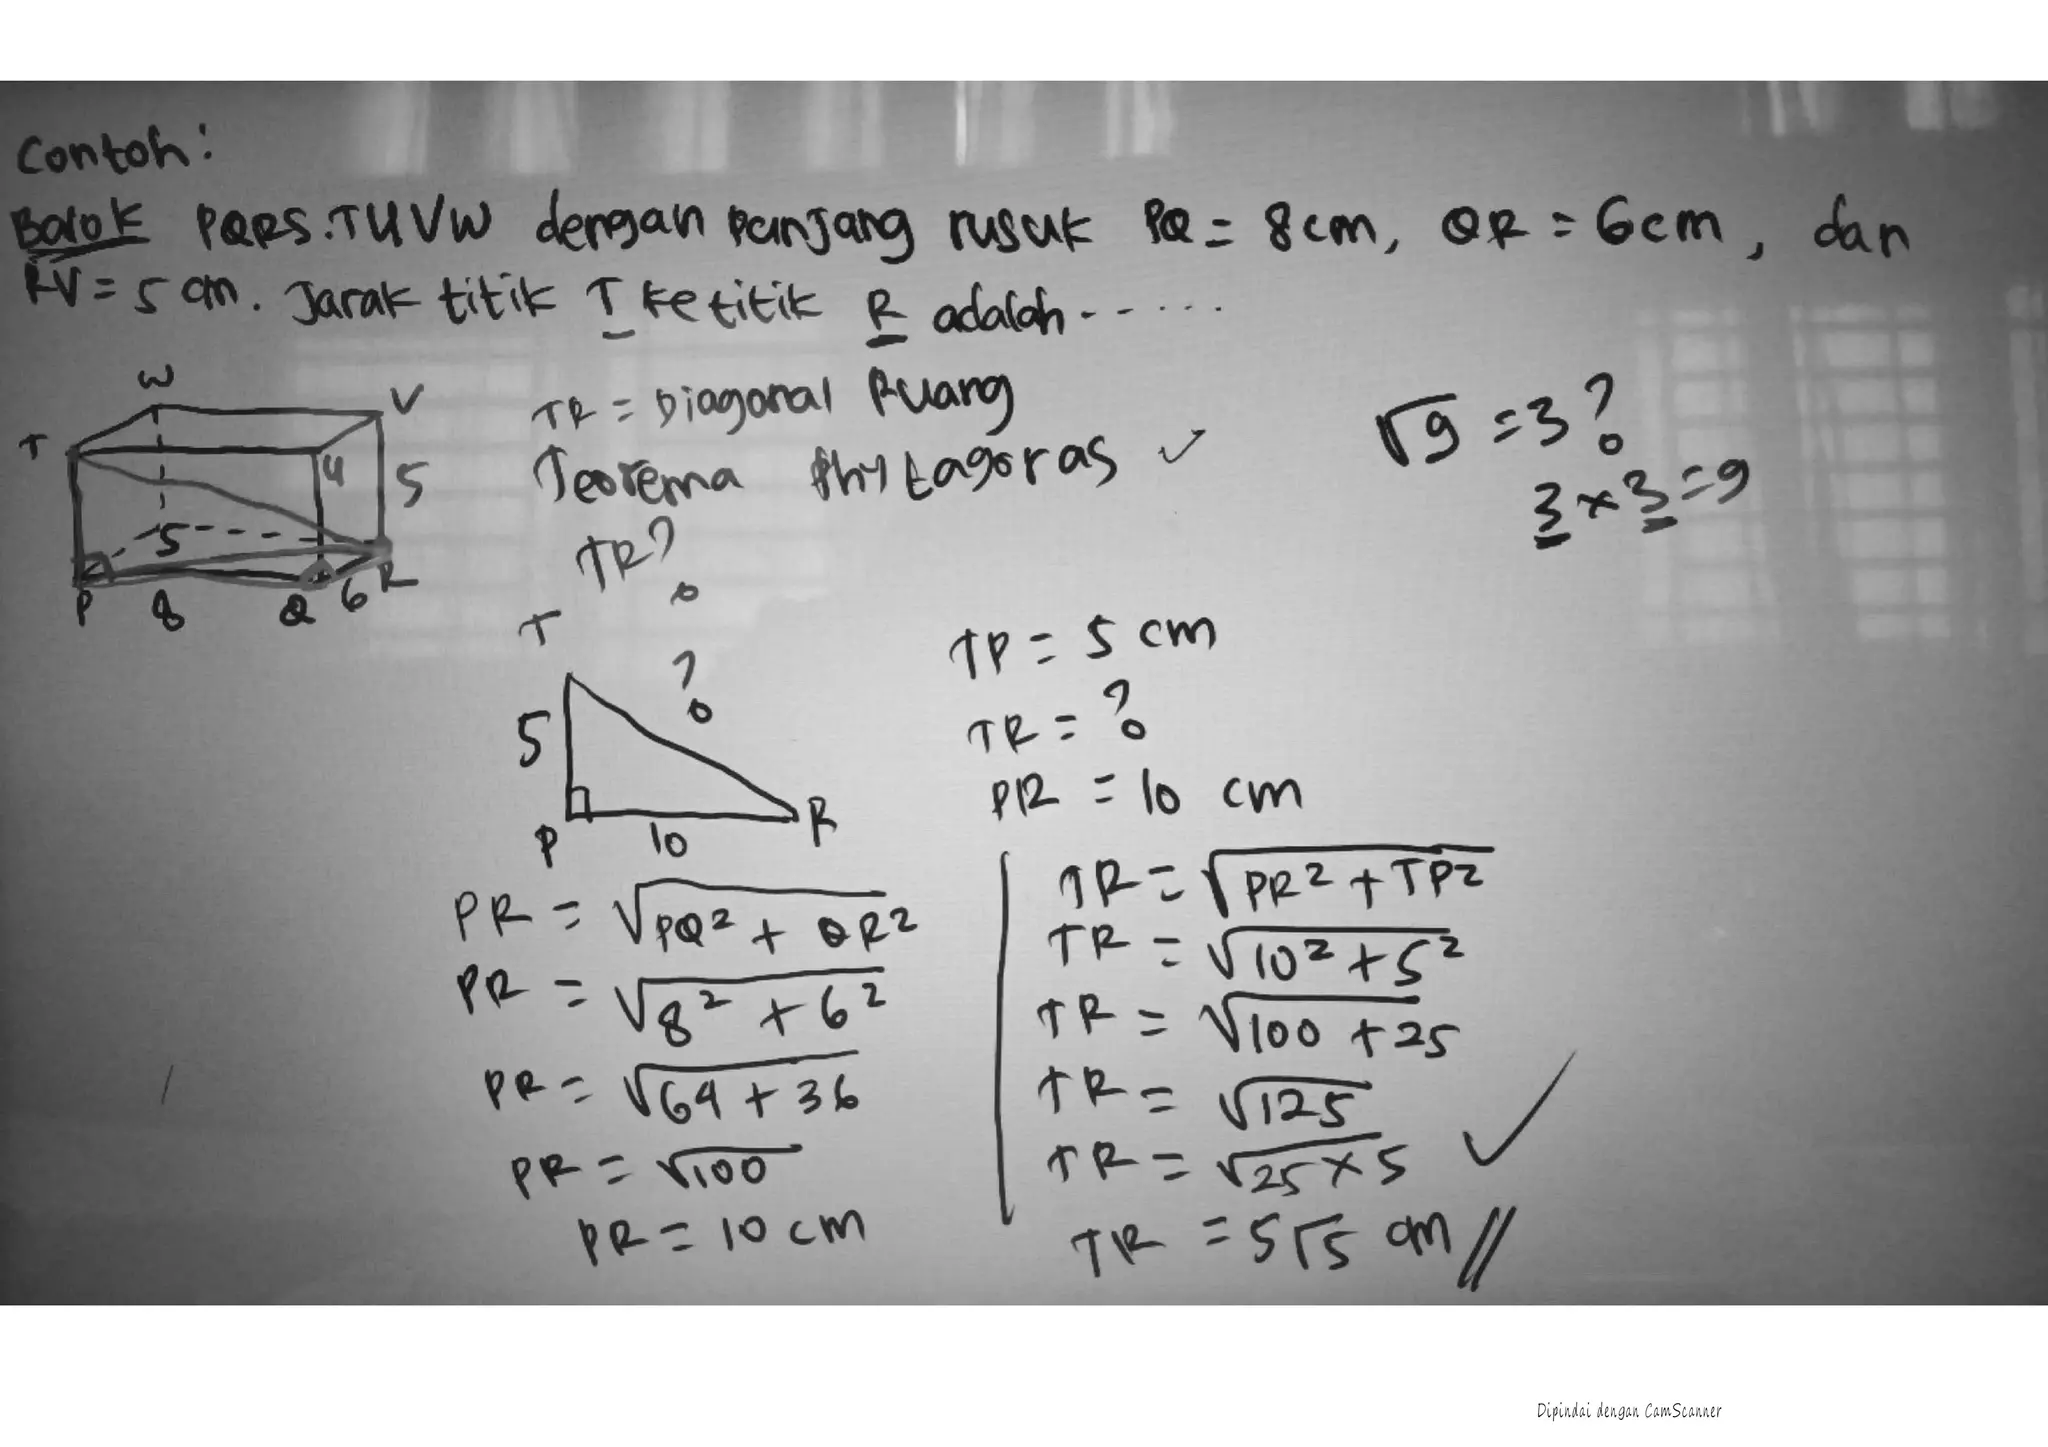 Contoh:
Balok PQRS.TUVW dengan panjang rusuk PQ = 8cm, QR = 6cm, dan
RV = 5 cm. Jarak titik T ke titik R adalah ......
W
V
T
U
5
S
P
8
Q
6
R
TR = Diagonal Ruang
Teorema Phytagoras ✓
TR?
√9 = 3?
3 × 3 = 9
T
5
?
P
10
R
TP = 5 cm
TR = ?
PR = 10 cm
PR = √PQ² + QR²
PR = √8² + 6²
PR = √64 + 36
PR = √100
PR = 10 cm
TR = √PR² + TP²
TR = √10² + 5²
TR = √100 + 25
TR = √125
TR = √25 × 5 ✓
TR = 5√5 cm //
Dipindai dengan CamScanner